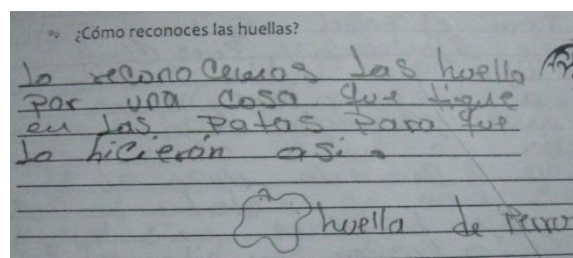 ¿Cómo reconoces las huellas?
lo reconocemos las huella
por una cosa que tiene
en las patas para que
lo hicierón asi.
huella de Perro